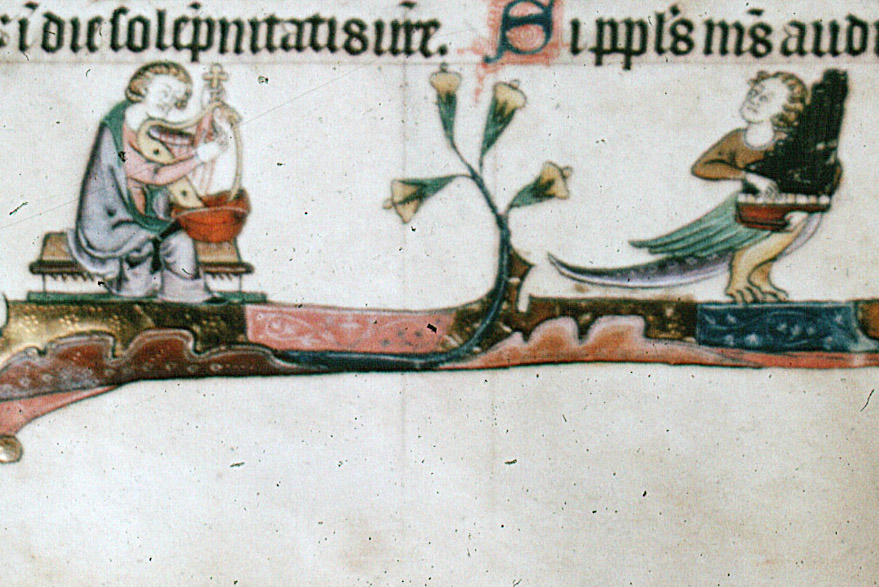 ı̄ die solēpnitatis ur̄e. Si ppl̄s ms̄ audi